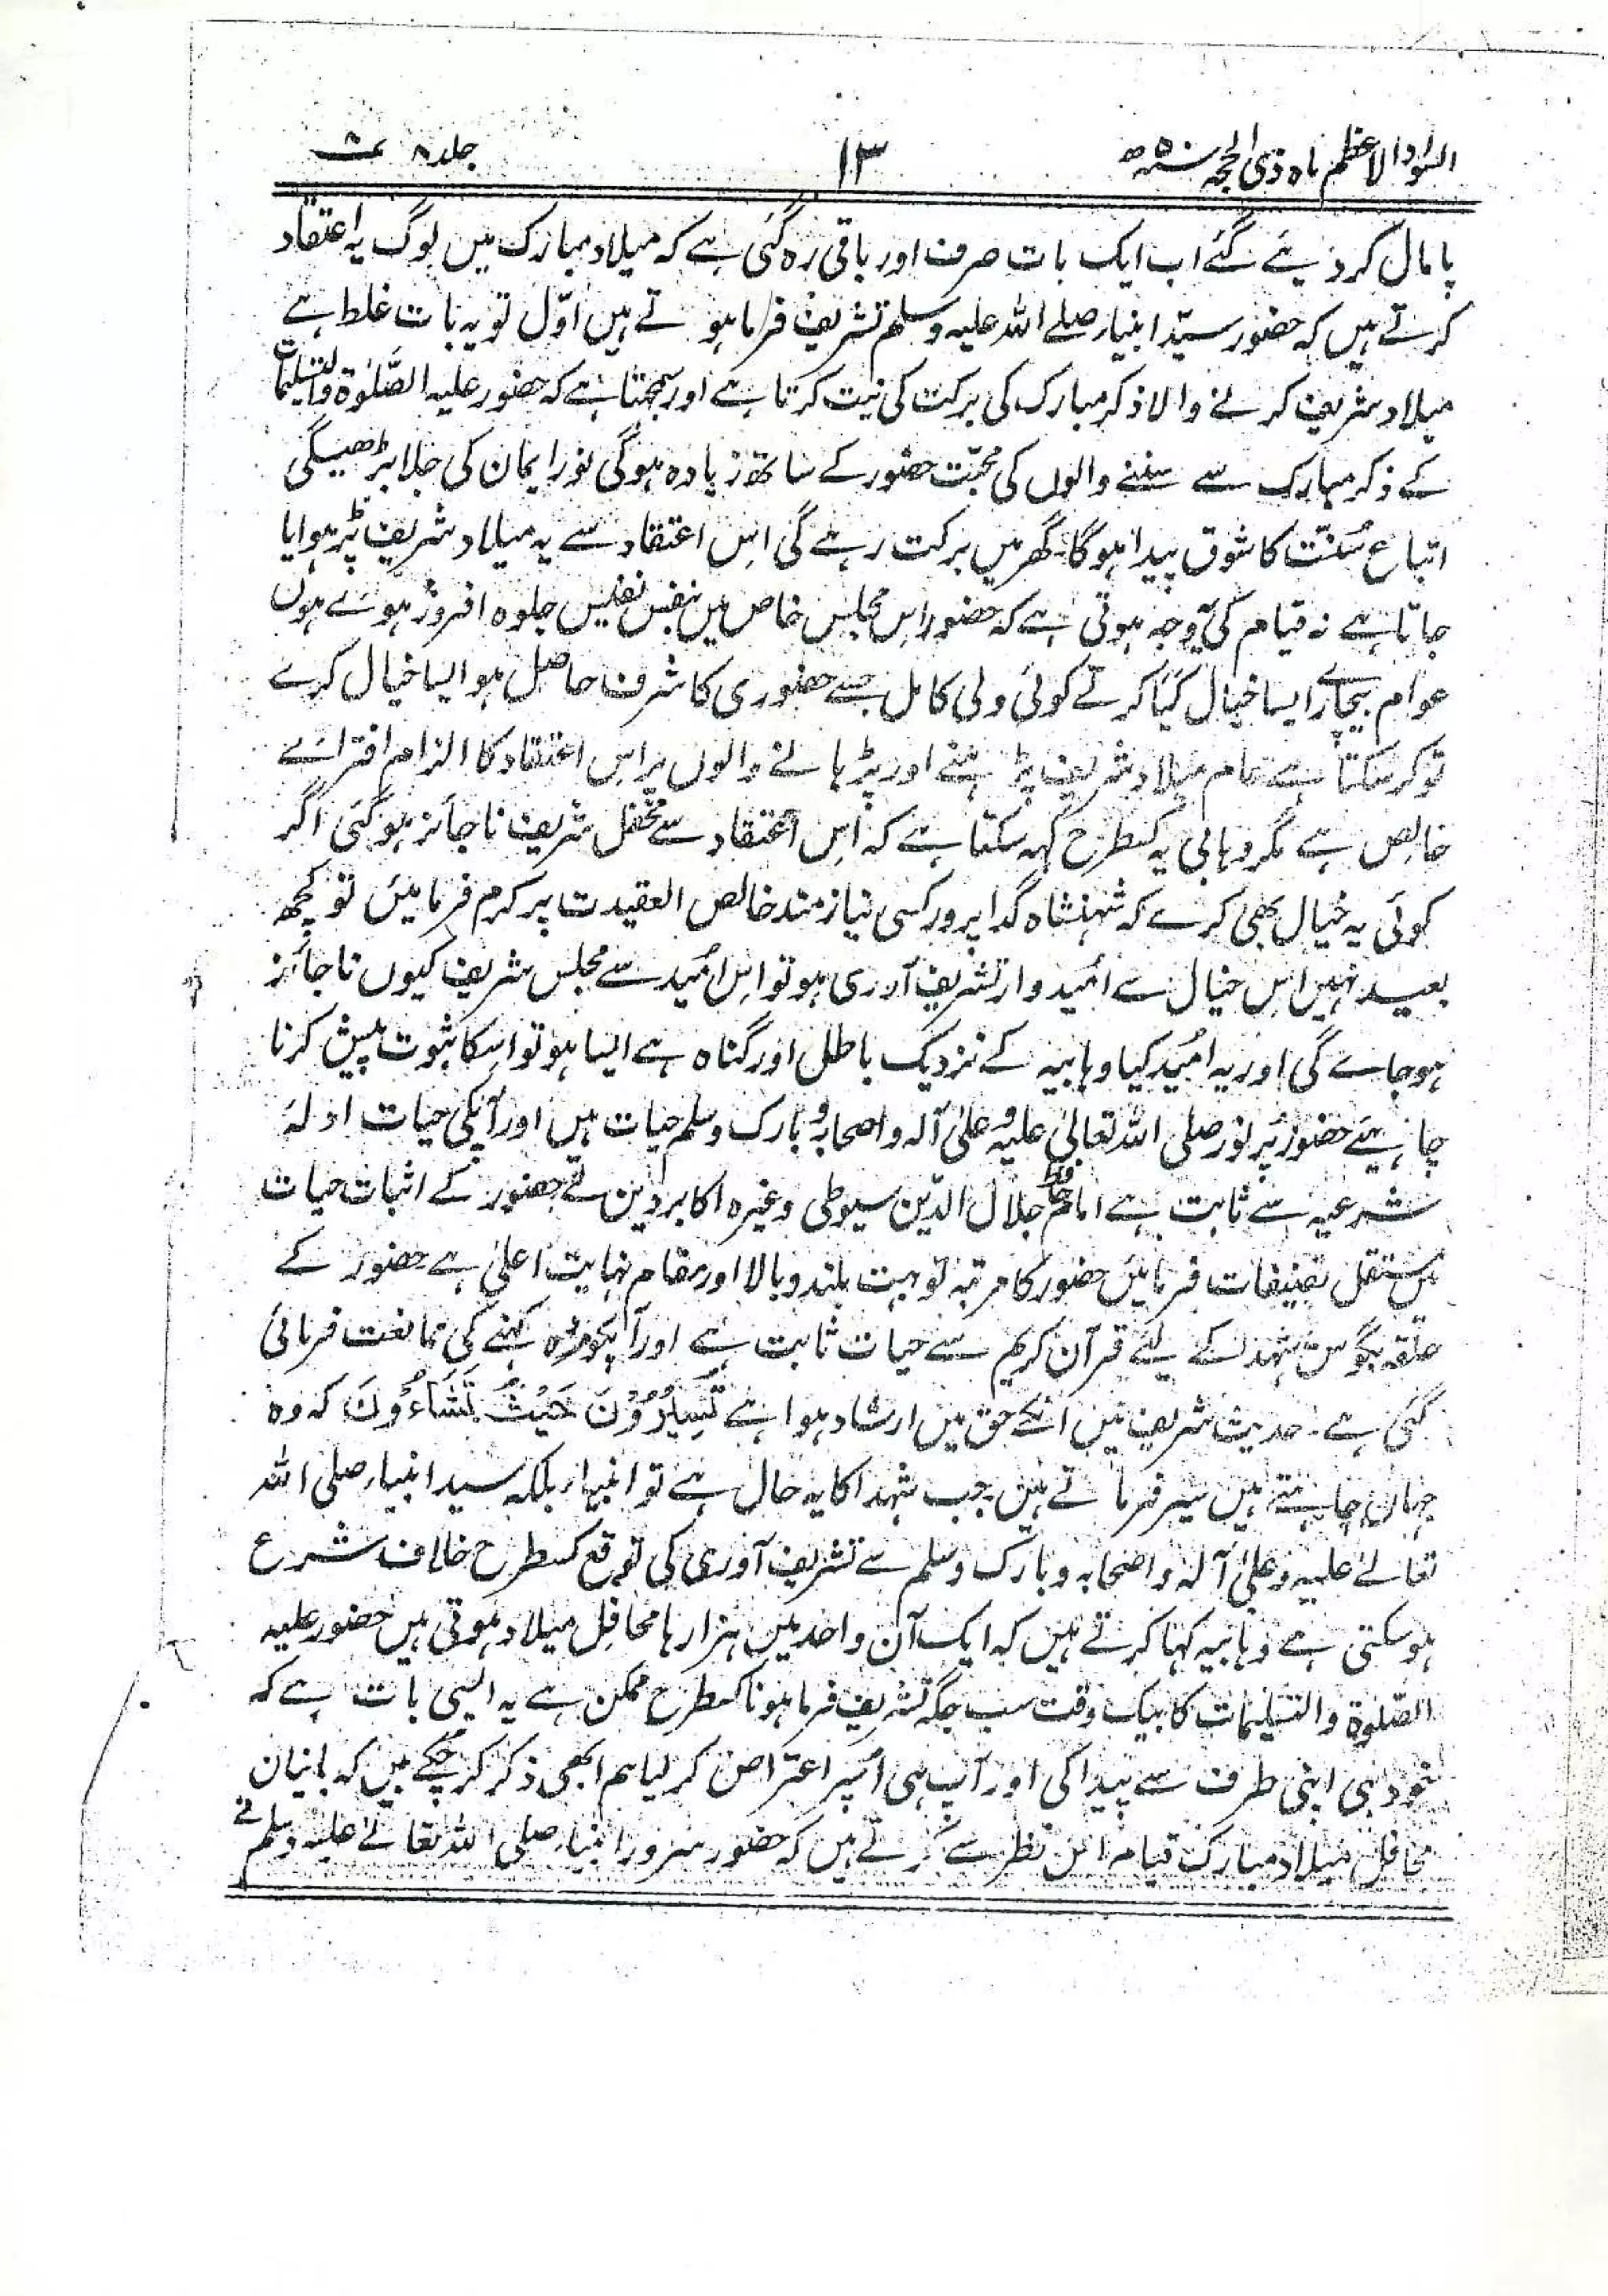 السواد الاعظم ماہ ذی الحجہ ۵۰ھ ۱۳ جلد ۸
پامال کر دیئے گئے اب ایک بات صرف اور باقی رہ گئی ہے کہ میلاد مبارک میں لوگ یہ اعتقاد
کرتے ہیں کہ حضور سیّد انبیار صلے اللہ علیہ وسلم تشریف فرما ہو تے ہیں اوّل تو یہ بات غلط ہے
میلاد شریف کرنے والا ذکر مبارک کی برکت کی نیت کرتا ہے اور سمجہتا ہے کہ حضور علیہ الصَّلوٰۃ والتسلیمات
کے ذکر مبارک سے سننے والوں کی محبّت حضور کے ساتھ زیادہ ہوگی نور ایمان کی جلا بڑھیگی
اتباع سُنّت کا شوق پیدا ہوگا۔ گھر میں برکت رہے گی اِس اعتقاد سے یہ میلاد شریف پڑہوایا
جاتا ہے نہ قیام کی وجہ ہوتی ہے کہ حضور اِس مجلس خاص میں بنفس نفلیس جلوہ افروز ہوئے ہوں
عوام بیچارے ایسا خیال کیا کرتے کوئی ولی کامل جسے حضوری کا شرف حاصل ہو ایسا خیال کرے
تو کر سکتا ہے عام میلاد شریف پڑ ہنے اور پڑہانے والوں پر اس اعتقاد کا الزام افترائے
خالِص ہے مگر وہابی یہ کسطرح کہہ سکتا ہے کہ اُس اعتقاد سے محفل شریف نا جائز ہو گئی اگر
کوئی یہ خیال بھی کرے کہ شہنشاہ گدا پرور کسی نیاز مند خالص العقیدت پر کرم فرمائیں تو کچھ
بعید نہیں اِس خیال سے اُمید وار تشریف آوری ہو تو اس اُمید سے مجلس شریف کیوں نا جائز
ہو جاے گی اور یہ امُید کیا وہابیہ کے نزدیک باطل اور گناہ ہے ایسا ہو تو اسکا ثبوت پیش کرنا
چاہیئے حضور پُر نور صلی اللہ تعالیٰ علیہ وعلیٰ آلہ واصحابہ وبارک وسلم حیات ہیں اور آپکی حیات ادلہٗ
شرعیہ سے ثابت ہے امام حافظ جلال الدّین سیوطی وغیرہ اکابر دین نے حضور کے اثبات حیات
میں مستقل تصنیفات فرمائیں حضور کا مرتبہ تو بہت بلند وبالا اور مقام نہایت اعلیٰ ہے حضور کے
حلقہ بگوش شہدا کے لئے قرآن کریم سے حیات ثابت ہے اور آپکو مردہ کہنے کی ممانعت فرمائی
گئی ہے۔ حدیث شریف میں انکے حق میں ارشاد ہوا ہے تَسِیْرُوْنَ حَیْثُ تَشَاءُوْنَ کہ وہ
جہاں چاہتے ہیں سیر فرماتے ہیں جب شہدا کا یہ حال ہے تو انبیاء بلکہ سید انبیاء صلی اللہ
تعالےٰ علیہ وعلیٰ آلہ واصحابہ وبارک وسلم سے تشریف آوری کی توقع کسطرح خلاف شرع
ہو سکتی ہے وہابیہ کہا کرتے ہیں کہ ایک آن واحد میں ہزارہا محافِل میلاد ہوتی ہیں حضور علیہ
الصّلوٰۃ والتسلیمات کا بیک وقت سب جگہ تشریف فرما ہونا کسطرح ممکن ہے یہ ایسی بات ہے کہ
خود ہی اپنی طرف سے پیدا کی اور آپ ہی اُسپر اعتراض کر لیا ہم ابھی ذکر کر چکے ہیں کہ بانیان
محافل میلاد مبارک قیام اس نظر سے کرتے ہیں کہ حضور سرور انبیار صلی اللہ تعالےٰ علیہ وسلم نے